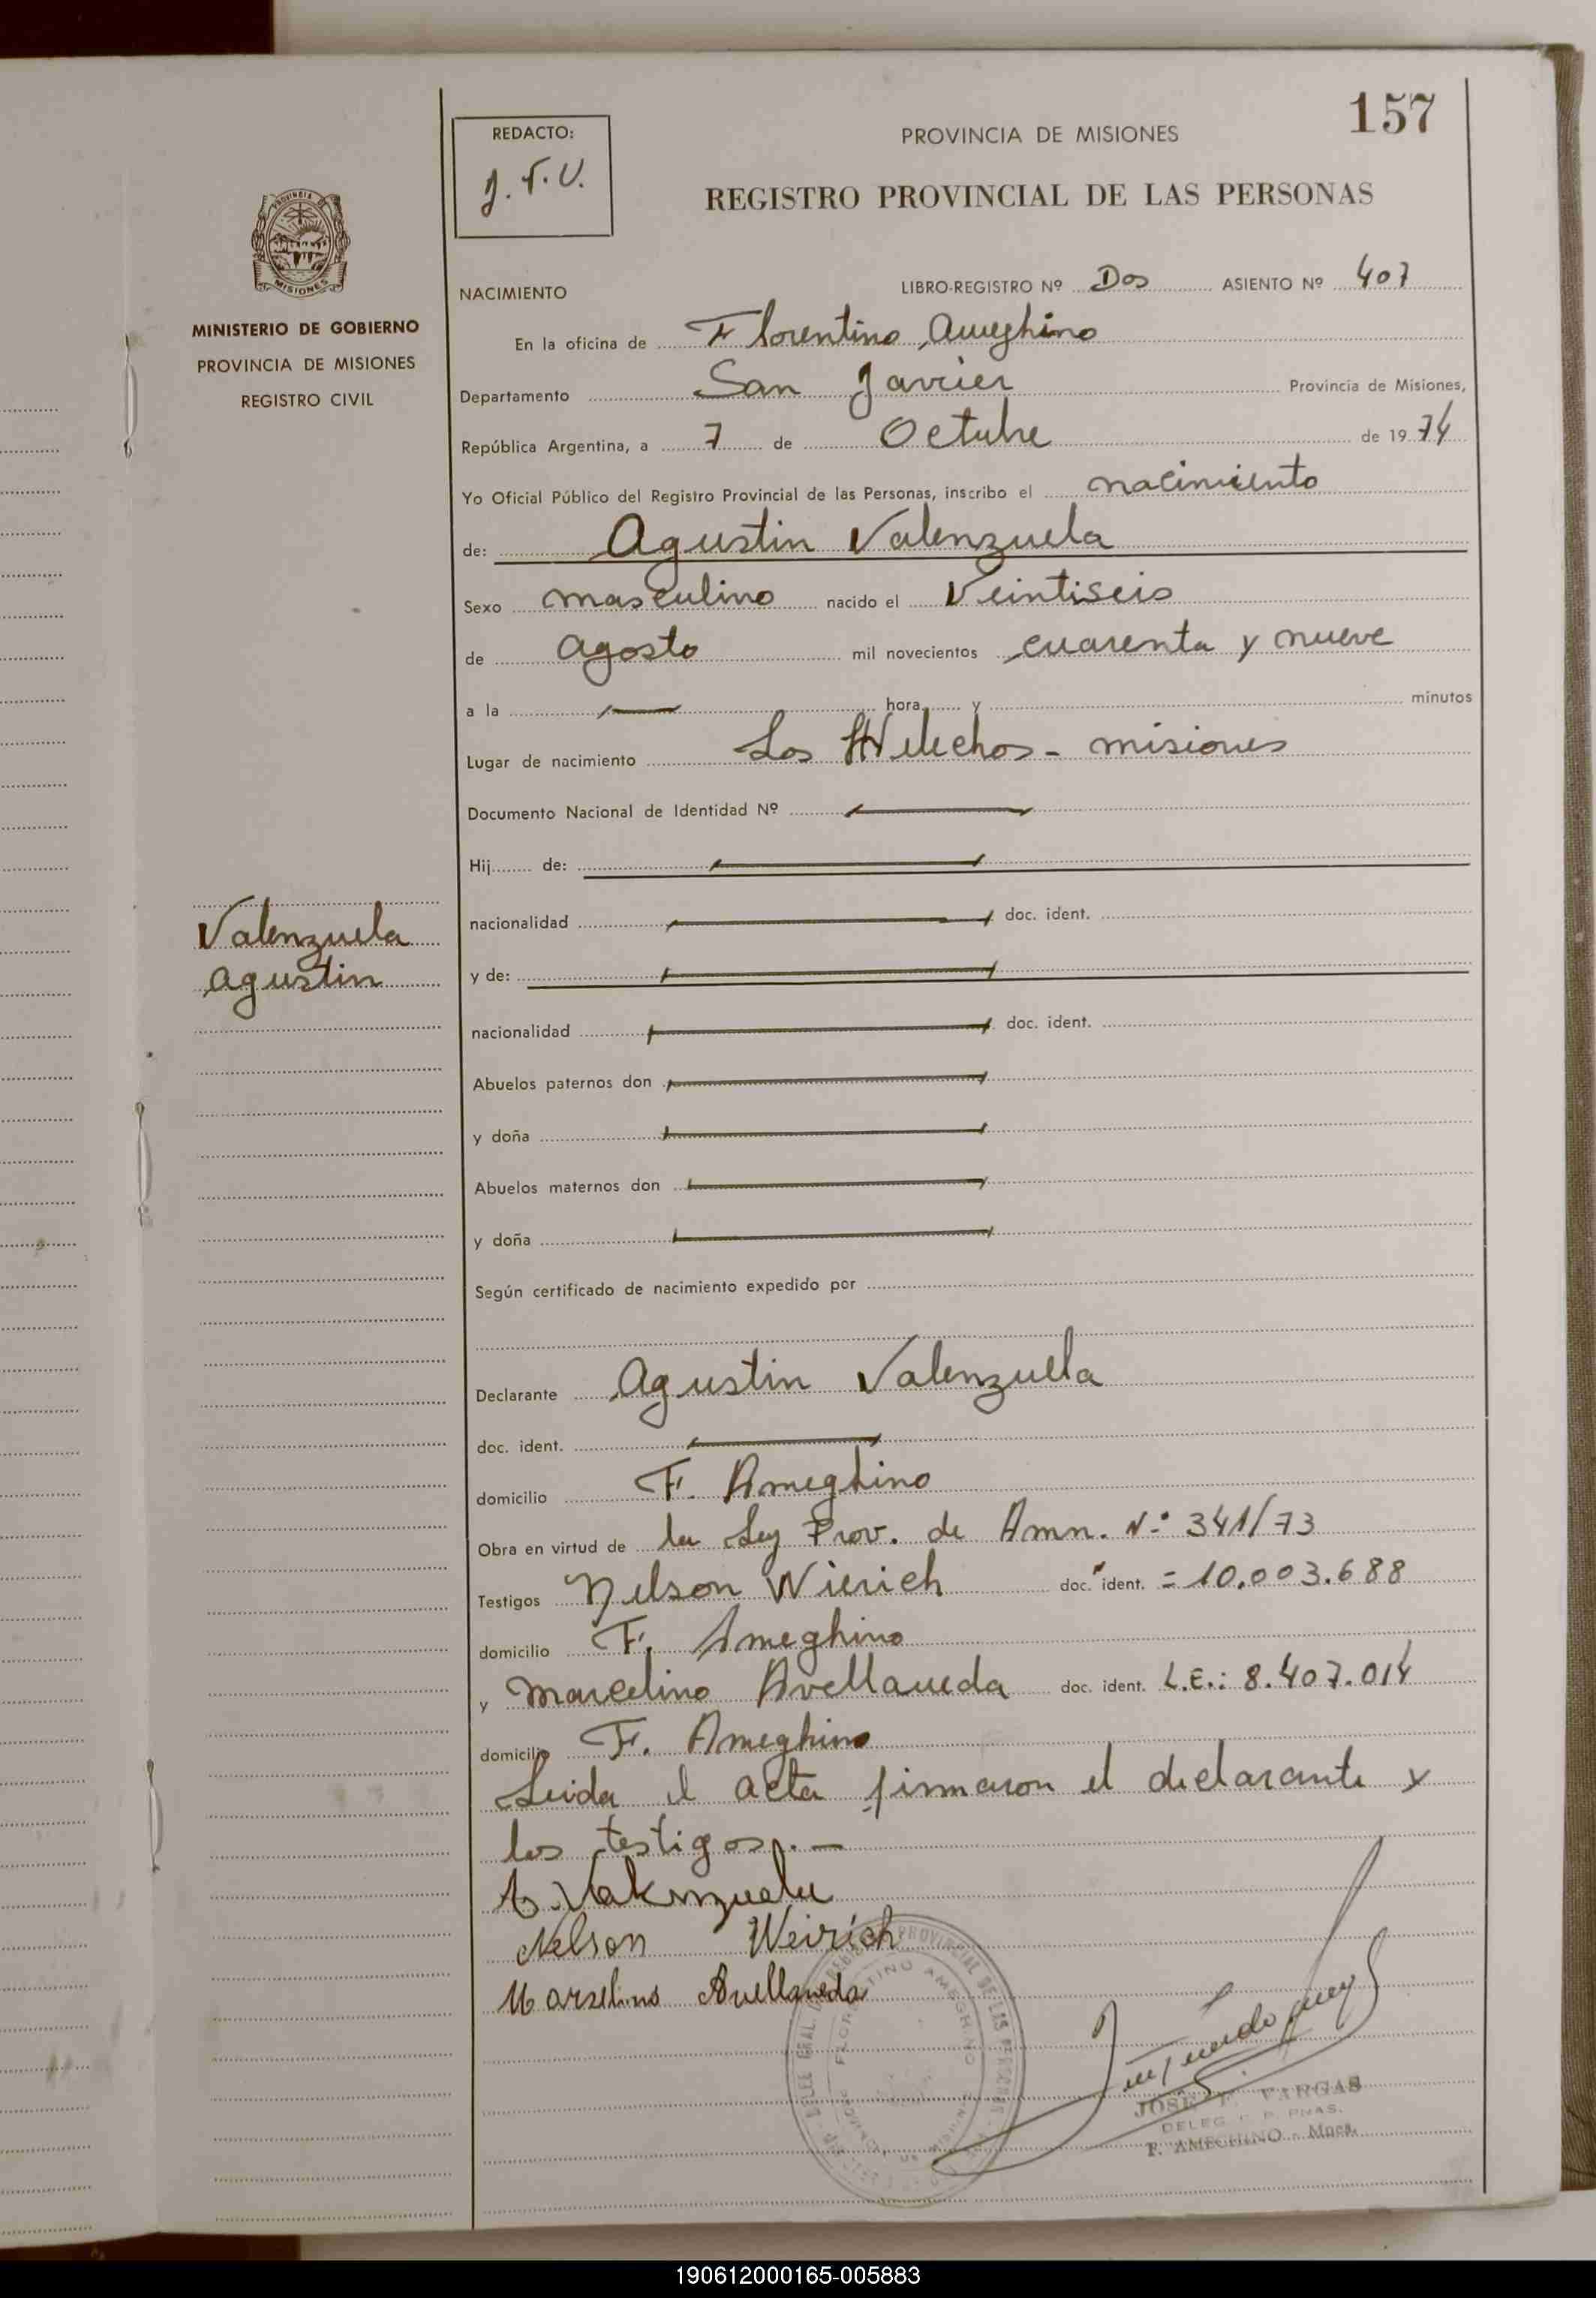 157
REDACTO:
J. F. V.
PROVINCIA DE MISIONES
REGISTRO PROVINCIAL DE LAS PERSONAS
MISIONES
MINISTERIO DE GOBIERNO
PROVINCIA DE MISIONES
REGISTRO CIVIL
Valenzuela
Agustin
NACIMIENTO
LIBRO-REGISTRO Nº Dos ASIENTO Nº 407
En la oficina de Florentino Ameghino
Departamento San Javier Provincia de Misiones,
República Argentina, a 7 de Octubre de 1974
Yo Oficial Público del Registro Provincial de las Personas, inscribo el nacimiento
de: Agustin Valenzuela
Sexo masculino nacido el Veintiseis
de agosto mil novecientos cuarenta y nueve
a la — hora y minutos
Lugar de nacimiento Los Helechos - misiones
Documento Nacional de Identidad Nº —
Hij de: —
nacionalidad — doc. ident.
y de: —
nacionalidad — doc. ident.
Abuelos paternos don —
y doña —
Abuelos maternos don —
y doña —
Según certificado de nacimiento expedido por
Declarante Agustin Valenzuela
doc. ident. —
domicilio F. Ameghino
Obra en virtud de la Ley Prov. de Amn. Nº 341/73
Testigos Nelson Wierich doc. ident. = 10.003.688
domicilio F. Ameghino
y Marcelino Avellaneda doc. ident. L.E.: 8.407.014
domicilio F. Ameghino
Leida el acta firmaron el declarante y
los testigos. —
A. Valenzuela
Nelson Weirich
Marselino Avellaneda
JOSE F. VARGAS
F. AMEGHINO - Mnes.
190612000165-005883